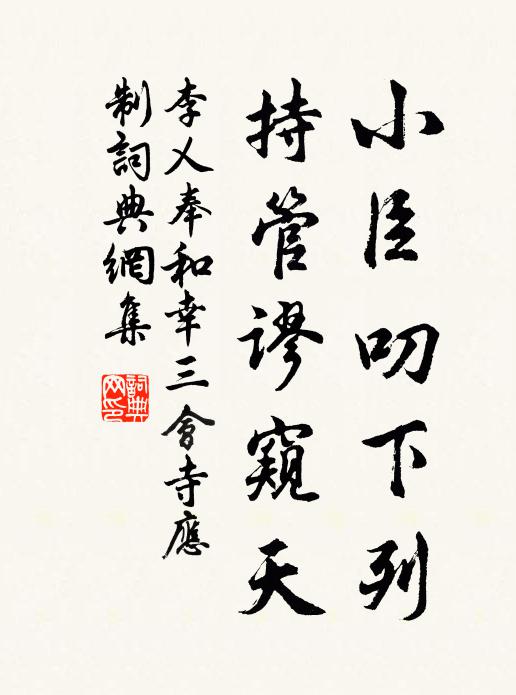 小臣叨下列
持管謬窺天
李乂奉和幸三會寺應
制詞典網集
詞典网印